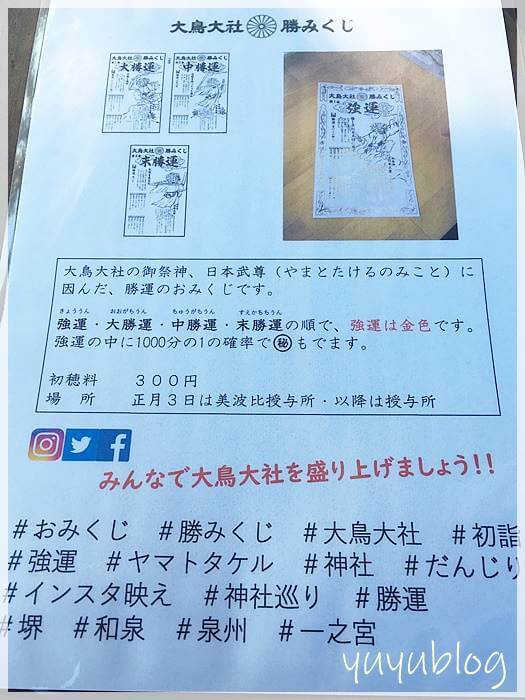 大鳥大社 勝みくじ
大鳥大社 勝みくじ
大勝運
大鳥大社 勝みくじ
中勝運
大鳥大社 勝みくじ
末勝運
大鳥大社 勝みくじ
強運
大鳥大社の御祭神、日本武尊（やまとたけるのみこと）に
因んだ、勝運のおみくじです。
きょううん おおがちうん ちゅうがちうん すえかちうん
強運・大勝運・中勝運・末勝運の順で、強運は金色です。
強運の中に1000分の1の確率で㊙もでます。
初穂料 ３００円
場 所 正月３日は美波比授与所・以降は授与所
みんなで大鳥大社を盛り上げましょう!!
#おみくじ #勝みくじ #大鳥大社 #初詣
#強運 #ヤマトタケル #神社 #だんじり
#インスタ映え #神社巡り #勝運
#堺 #和泉 #泉州 #一之宮
yuyublog